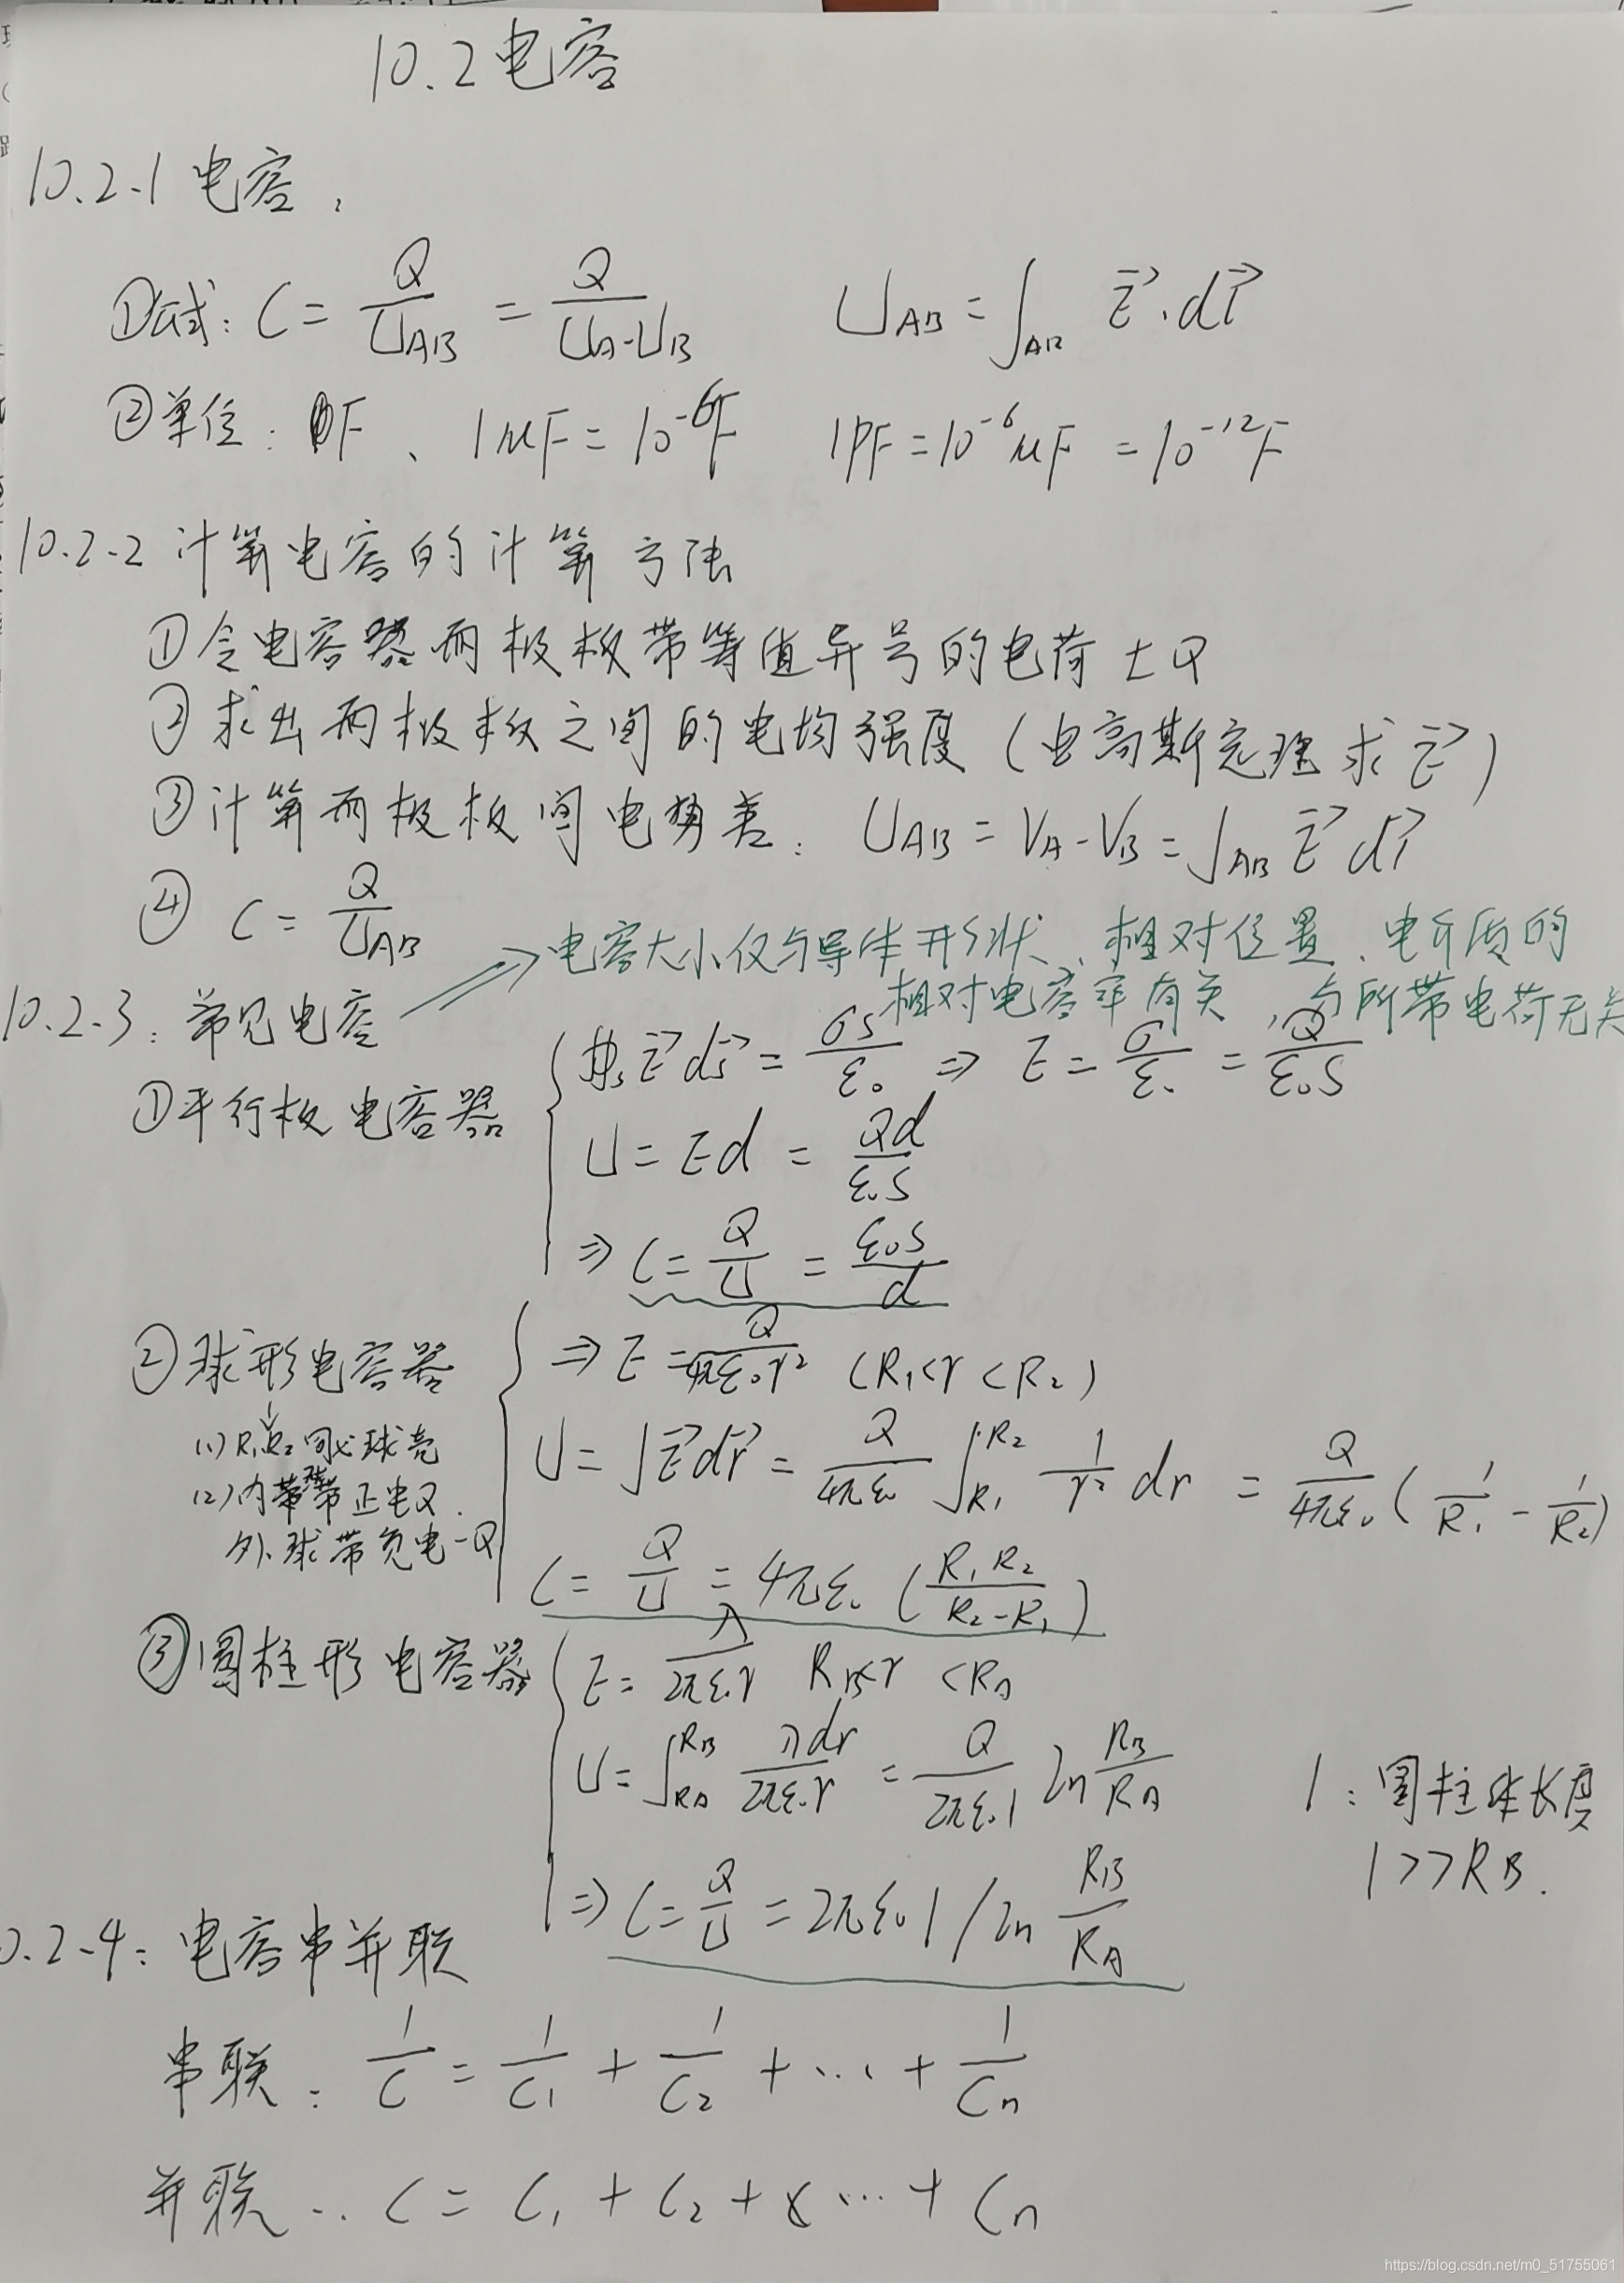 10.2 电容
10.2-1 电容:
①公式: C = Q/U_AB = Q/(U_A-U_B)    U_AB = ∫_AB E⃗·dl⃗
②单位: F、1μF = 10⁻⁶F    1PF = 10⁻⁶μF = 10⁻¹²F
10.2-2 计算电容的计算方法
①令电容器两极板带等值异号的电荷±Q
②求出两极板之间的电场强度(由高斯定理求E⃗)
③计算两极板间电势差: U_AB = V_A-V_B = ∫_AB E⃗ dl⃗
④ C = Q/U_AB
⇒电容大小仅与导体形状、相对位置、电介质的
相对电容率有关,与所带电荷无关
10.2-3: 常见电容
①平行板电容器 { ∯_s E⃗ ds⃗ = σS/ε₀ ⇒ E = σ/ε₀ = Q/(ε₀S)
U = Ed = Qd/(ε₀S)
⇒ C = Q/U = ε₀S/d
②球形电容器 { ⇒ E = Q/(4πε₀r²) (R₁<r<R₂)
(1) R₁R₂同心球壳
U = ∫E⃗dr⃗ = Q/(4πε₀) ∫_R₁^R₂ 1/r² dr = Q/(4πε₀) (1/R₁ - 1/R₂)
(2)内球带正电Q.
外球带负电-Q
C = Q/U = 4πε₀ (R₁R₂/(R₂-R₁))
③圆柱形电容器 { E = λ/(2πε₀r)  R_B<r<R_A
U = ∫_R_A^R_B λdr/(2πε₀r) = Q/(2πε₀l) ln R_B/R_A    l: 圆柱体长度
l>>R_B.
⇒ C = Q/U = 2πε₀l / ln R_B/R_A
0.2-4: 电容串并联
串联: 1/C = 1/C₁ + 1/C₂ + ... + 1/Cn
并联: C = C₁ + C₂ + ... + Cn
https://blog.csdn.net/m0_51755061